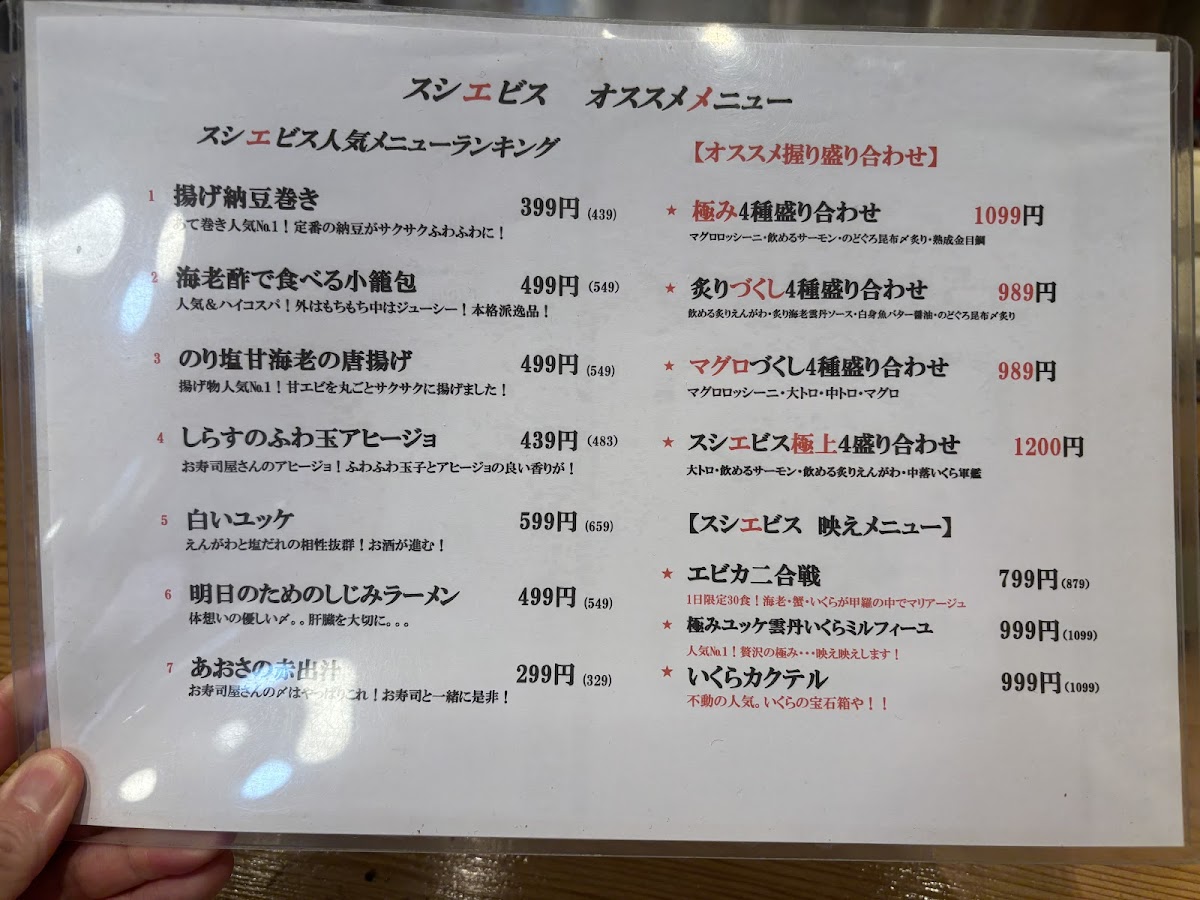 スシエビス オススメメニュー
スシエビス人気メニューランキング
1 揚げ納豆巻き 399円 (439)
あて巻き人気№1！定番の納豆がサクサクふわふわに！
2 海老酢で食べる小籠包 499円 (549)
人気＆ハイコスパ！外はもちもち中はジューシー！本格派逸品！
3 のり塩甘海老の唐揚げ 499円 (549)
揚げ物人気№1！甘エビを丸ごとサクサクに揚げました！
4 しらすのふわ玉アヒージョ 439円 (483)
お寿司屋さんのアヒージョ！ふわふわ玉子とアヒージョの良い香りが！
5 白いユッケ 599円 (659)
えんがわと塩だれの相性抜群！お酒が進む！
6 明日のためのしじみラーメン 499円 (549)
体想いの優しい〆。。肝臓を大切に。。。
7 あおさの赤出汁 299円 (329)
お寿司屋さんの〆はやっぱりこれ！お寿司と一緒に是非！
【オススメ握り盛り合わせ】
★ 極み4種盛り合わせ 1099円
マグロロッシーニ・飲めるサーモン・のどぐろ昆布〆炙り・熟成金目鯛
★ 炙りづくし4種盛り合わせ 989円
飲める炙りえんがわ・炙り海老雲丹ソース・白身魚バター醤油・のどぐろ昆布〆炙り
★ マグロづくし4種盛り合わせ 989円
マグロロッシーニ・大トロ・中トロ・マグロ
★ スシエビス極上4盛り合わせ 1200円
大トロ・飲めるサーモン・飲める炙りえんがわ・中落いくら軍艦
【スシエビス 映えメニュー】
★ エビカニ合戦 799円(879)
1日限定30食！海老・蟹・いくらが甲羅の中でマリアージュ
★ 極みユッケ雲丹いくらミルフィーユ 999円(1099)
人気№1！贅沢の極み・・・映え映えします！
★ いくらカクテル 999円(1099)
不動の人気。いくらの宝石箱や！！